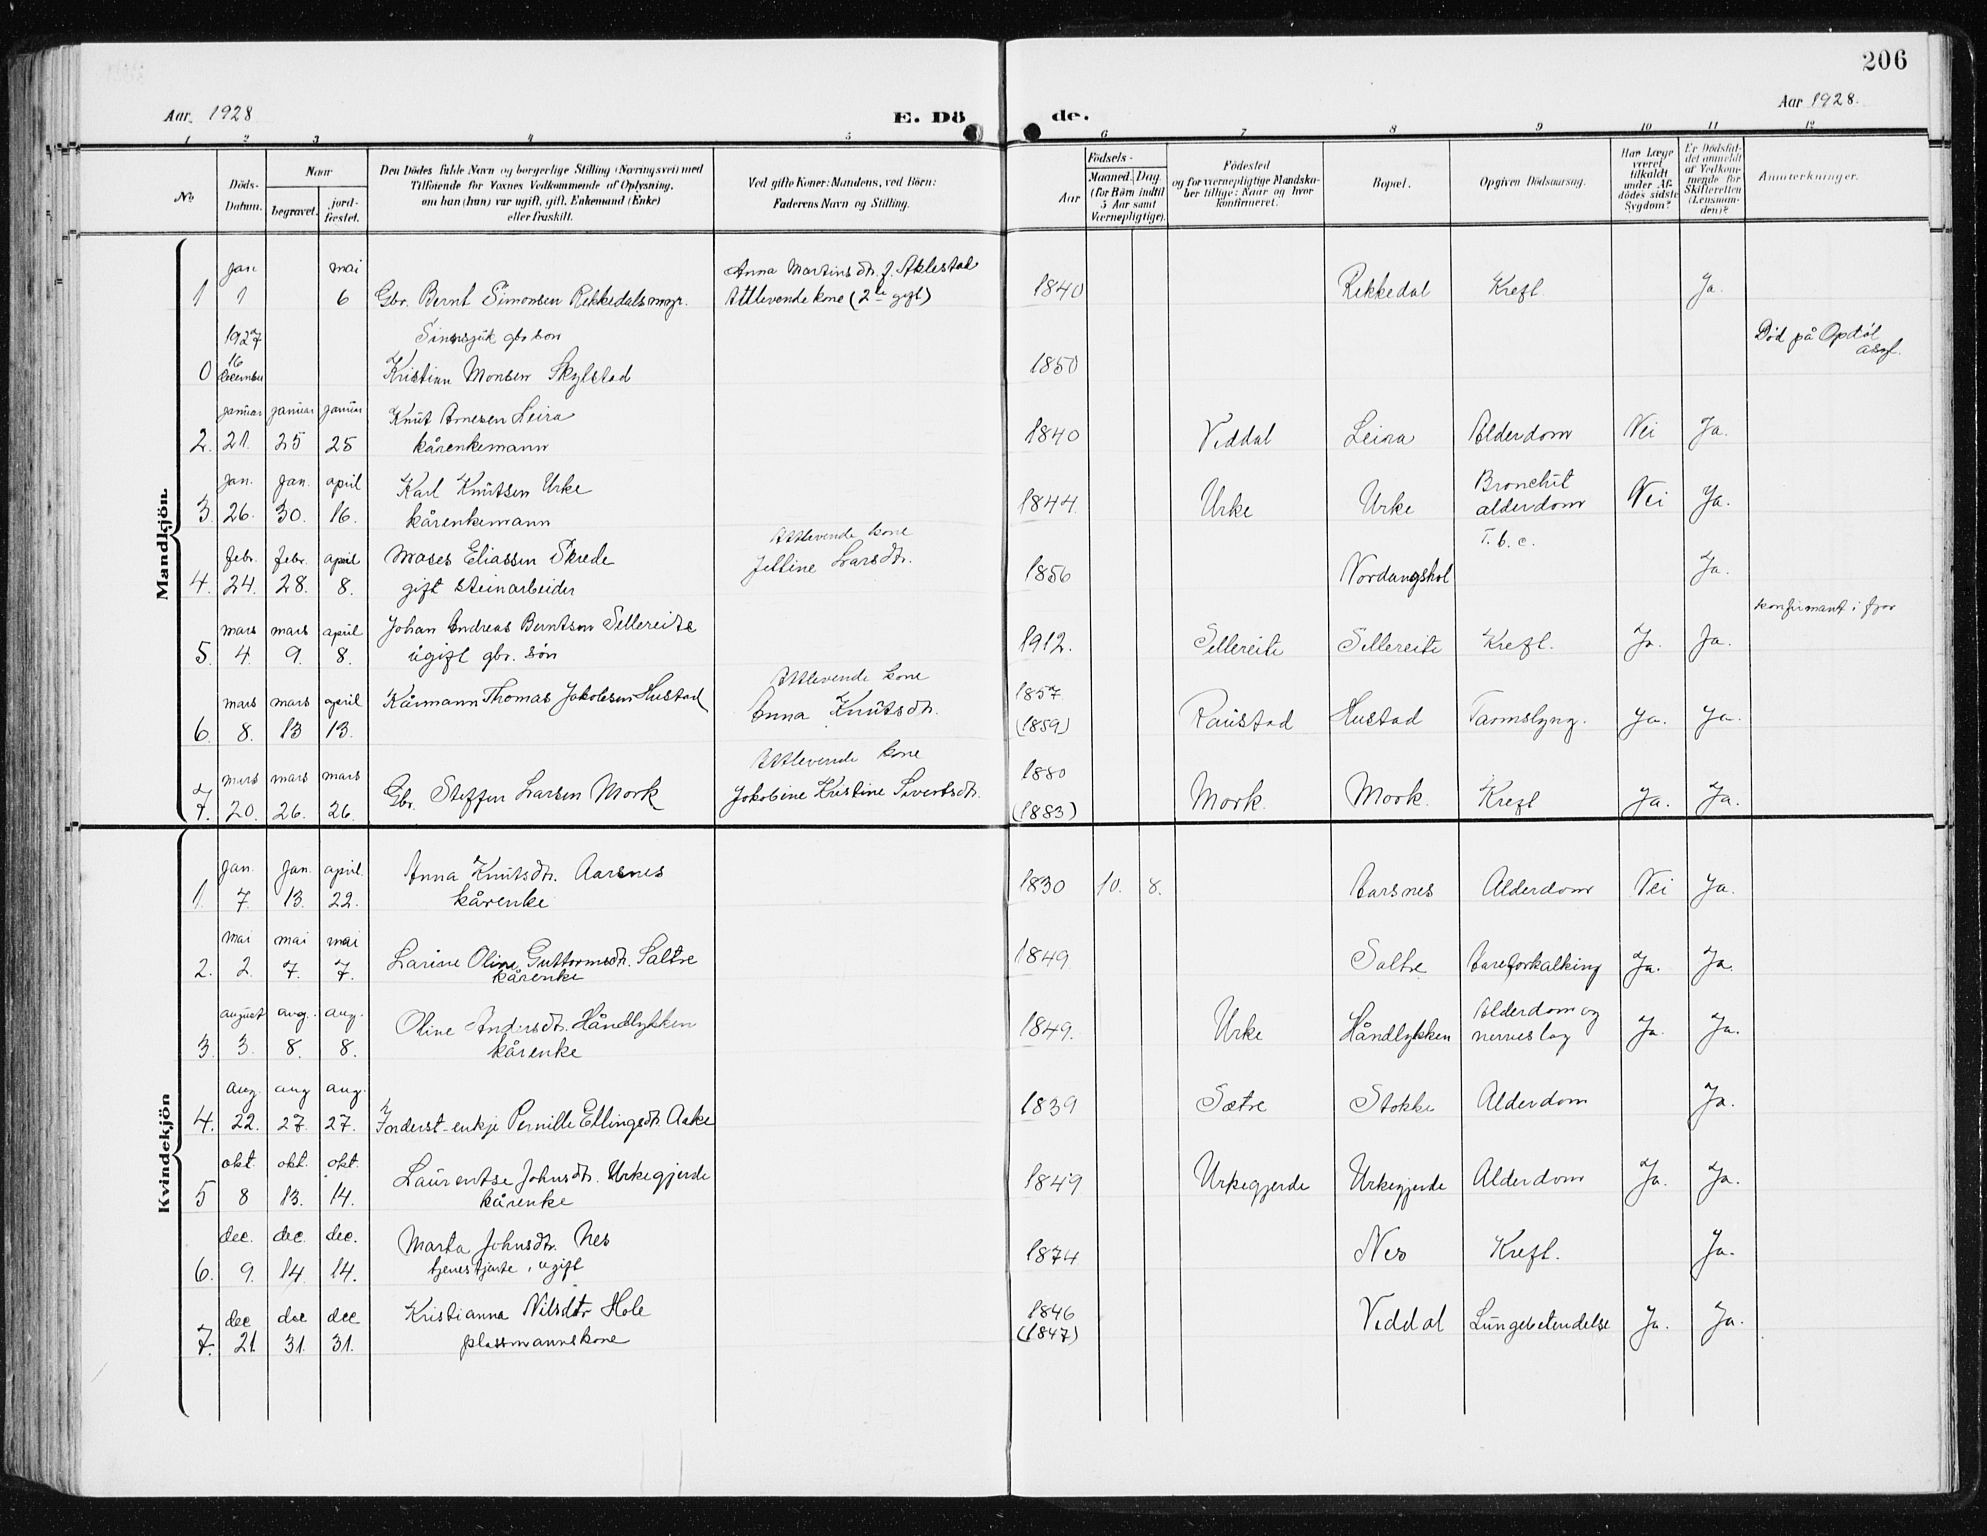 206
Aar 1928
E. Dö
de.
Aar 1928.
1 2 3 4 5 6 7 8 9 10 11 12
No.
Döds-
Datum.
Naar
begravet.
jord-
fæstet.
Den Dödes fulde Navn og borgerlige Stilling (Næringsvei) med
Tilföiende for Voxnes Vedkommende af Oplysning,
om han (hun) var ugift, gift, Enkemand (Enke)
eller fraskilt.
Ved gifte Koner: Mandens, ved Börn:
Faderens Navn og Stilling.
Födsels-
Aar
Maaned. Dag.
(for Börn indtil
5 Aar samt
Værnepligtige).
Födested
og for værnepligtige Mandska-
ber tillige: Naar og hvor
konfirmeret.
Bopæl.
Opgiven Dödsaarsag.
Har Læge
været
tilkaldt
under Af-
dödes sidste
Sygdom?
Er Dödsfal-
det anmeldt
af Vedkom-
mende for
Skifteretten
(Lensman-
den)?
Anmærkninger.
Mandkjön.
jan mai Anna Martinsdtr. f. Aklestad
1 1 6 Gbr. Bernt Simonsen Rekkedal smgr. Attlevende kone (2de gift) 1840 Rekkedal Kreft Ja.
1927 Sinnssjuk gbr son Död på Opdöl
16 asyl.
0 december Kristian Monsen Skylstad 1850
januar januar januar Knut Arnesen Leira
2. 21. 25 25 kårenkemann 1840 Viddal Leira Alderdom Nei Ja.
jan. jan. april Karl Knutsen Urke Bronchit
3. 26. 30. 16. kårenkemann 1844 Urke Urke alderdom Nei Ja.
febr. febr. april Moses Eliassen Skrede Attlevende kone T.b.c.
4. 24. 28. 8. gift steinarbeider Jelline Larsdtr. 1856 Nordangshol Ja.
mars mars april Johan Andreas Berntsen Sellereite konfirmant i fjor
5. 4. 9. 8. ugift gbr. sön 1912. Sellereite Sellereite Kreft. Ja. Ja.
mars mars april Kårmann Thomas Jakobsen Hustad Attlevende kone 1857
6. 8. 13 13. Anna Knutsdtr. (1859) Raustad Hustad Tarmslyng. Ja. Ja.
mars mars mars Attlevende kone 1880
7. 20. 26. 26. Gbr. Steffen Larsen Mork Jakobine Kristine Sivertsdtr. (1883) Mork. Mork. Kreft Ja. Ja.
Kvindekjön
jan. jan. april. Anna Knutsdtr. Aarsnes
1. 7. 13. 22. kårenke 1830 10. 8. Aarsnes Alderdom Nei Ja.
mai mai mai
2. 2. 7. 7. Larine Oline Guttormsdtr. Saltre 1849 Saltre Aareforkalking Ja. Ja.
kårenke
august aug. aug. Oline Andersdtr. Håndlykken Alderdom og
3. 3. 8. 8. kårenke 1849. Urke Håndlykken nerveslag Ja. Ja.
aug. aug aug.
4. 22. 27. 27. Inderst-enkje Pernille Ellingsdtr. Aake 1839 Sætre Stokke Alderdom Ja.
okt. okt. okt. Laurentse Johnsdtr. Urkegjerde
5 8 13. 14. kårenke 1849 Urkegjerde Urkegjerde Alderdom Ja. Ja.
dec. dec. dec. Marta Johnsdtr. Nes
6. 9. 14. 14. tjenestjente, ugift 1874 Nes Kreft. Ja.
dec dec dec Kristianna Nilsdtr Hole 1846
7. 21. 31. 31. plassmannskone (1847) Viddal Lungebetendelse Ja. Ja.